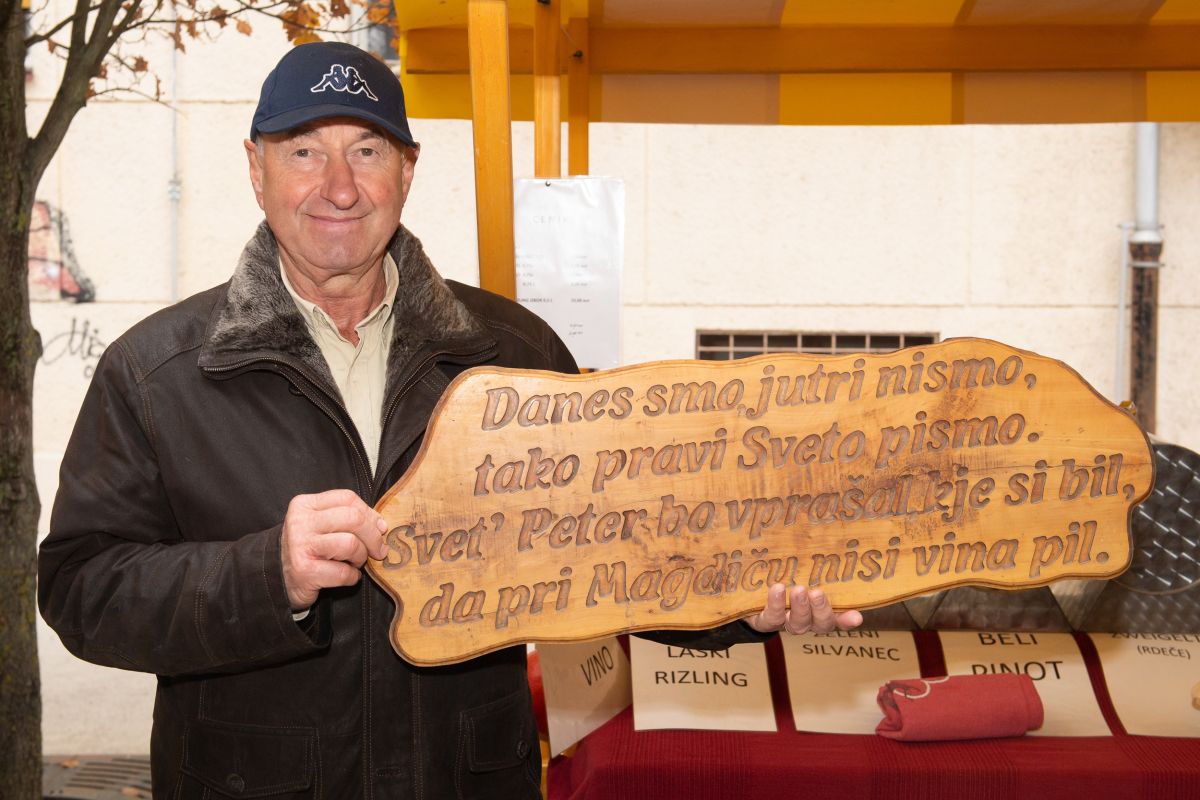 CENIK
Danes smo, jutri nismo,
tako pravi Sveto pismo.
Svet' Peter bo vprašal, kje si bil,
da pri Magdiču nisi vina pil.
VINO
LAŠKI
RIZLING
ZELENI
SILVANEC
BELI
PINOT
ZWEIGELT
(RDEČE)